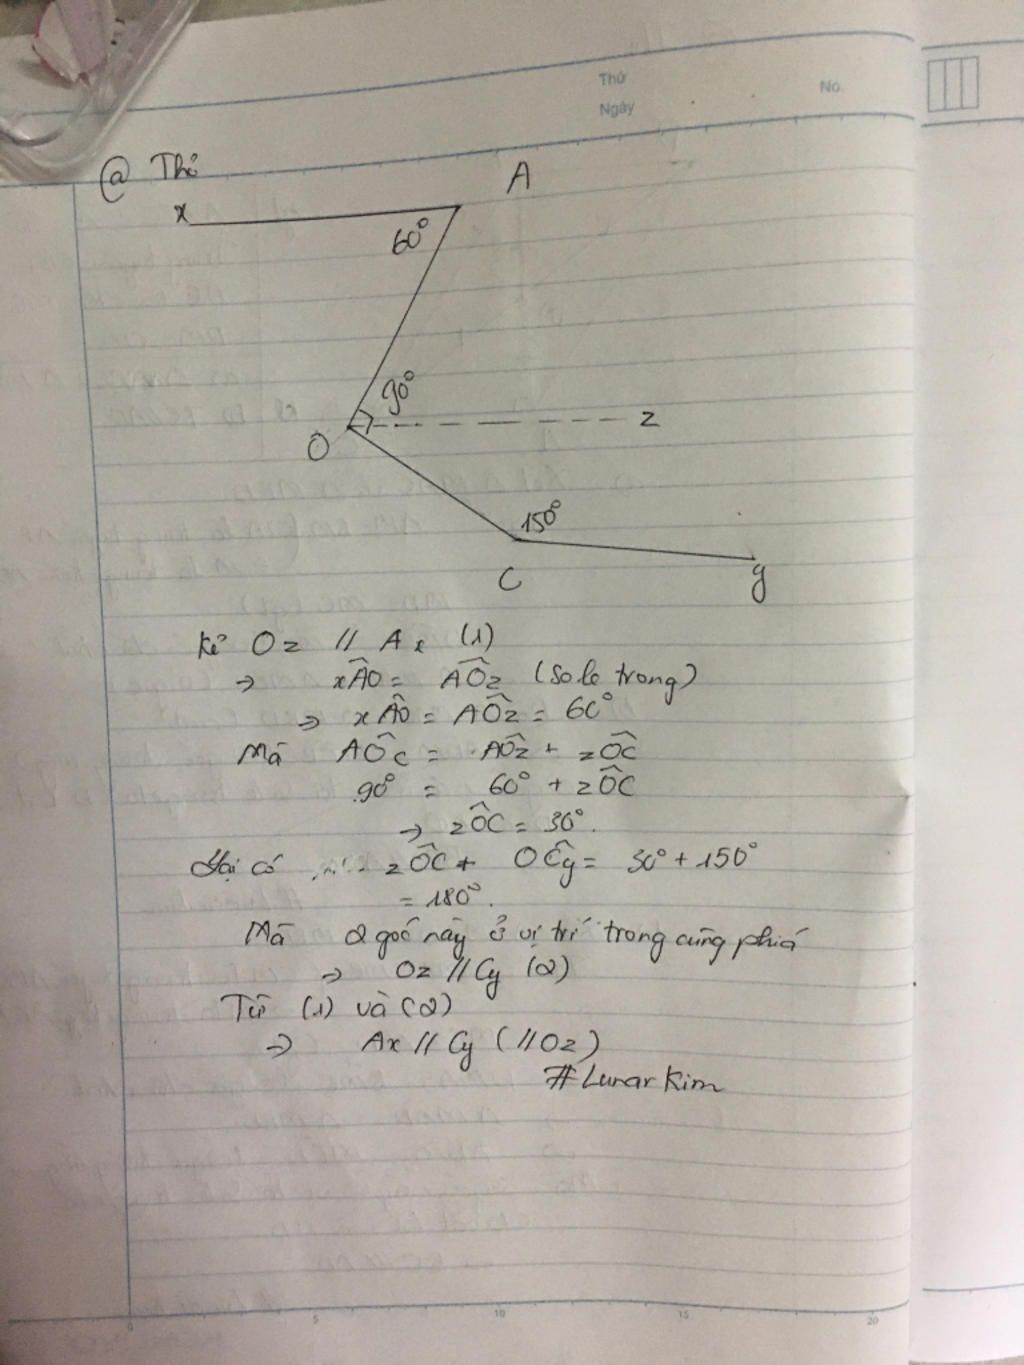 Thứ
Ngày
No.
@ Thỉ
A
x
60°
90°
z
O
150°
C
y
Kẻ Oz // Ax (1)
→ xÂO = AÔz (So le trong)
→ xÂO = AÔz = 60°
Mà AÔC = AÔz + zÔC
90° = 60° + zÔC
→ zÔC = 30°.
Lại có zÔC + OĈy = 30° + 150°
= 180°.
Mà 2 góc này ở vị trí trong cùng phía
→ Oz // Cy (2)
Từ (1) và (2)
→ Ax // Cy (// Oz)
#Lunar Kim
0 5 10 15 20